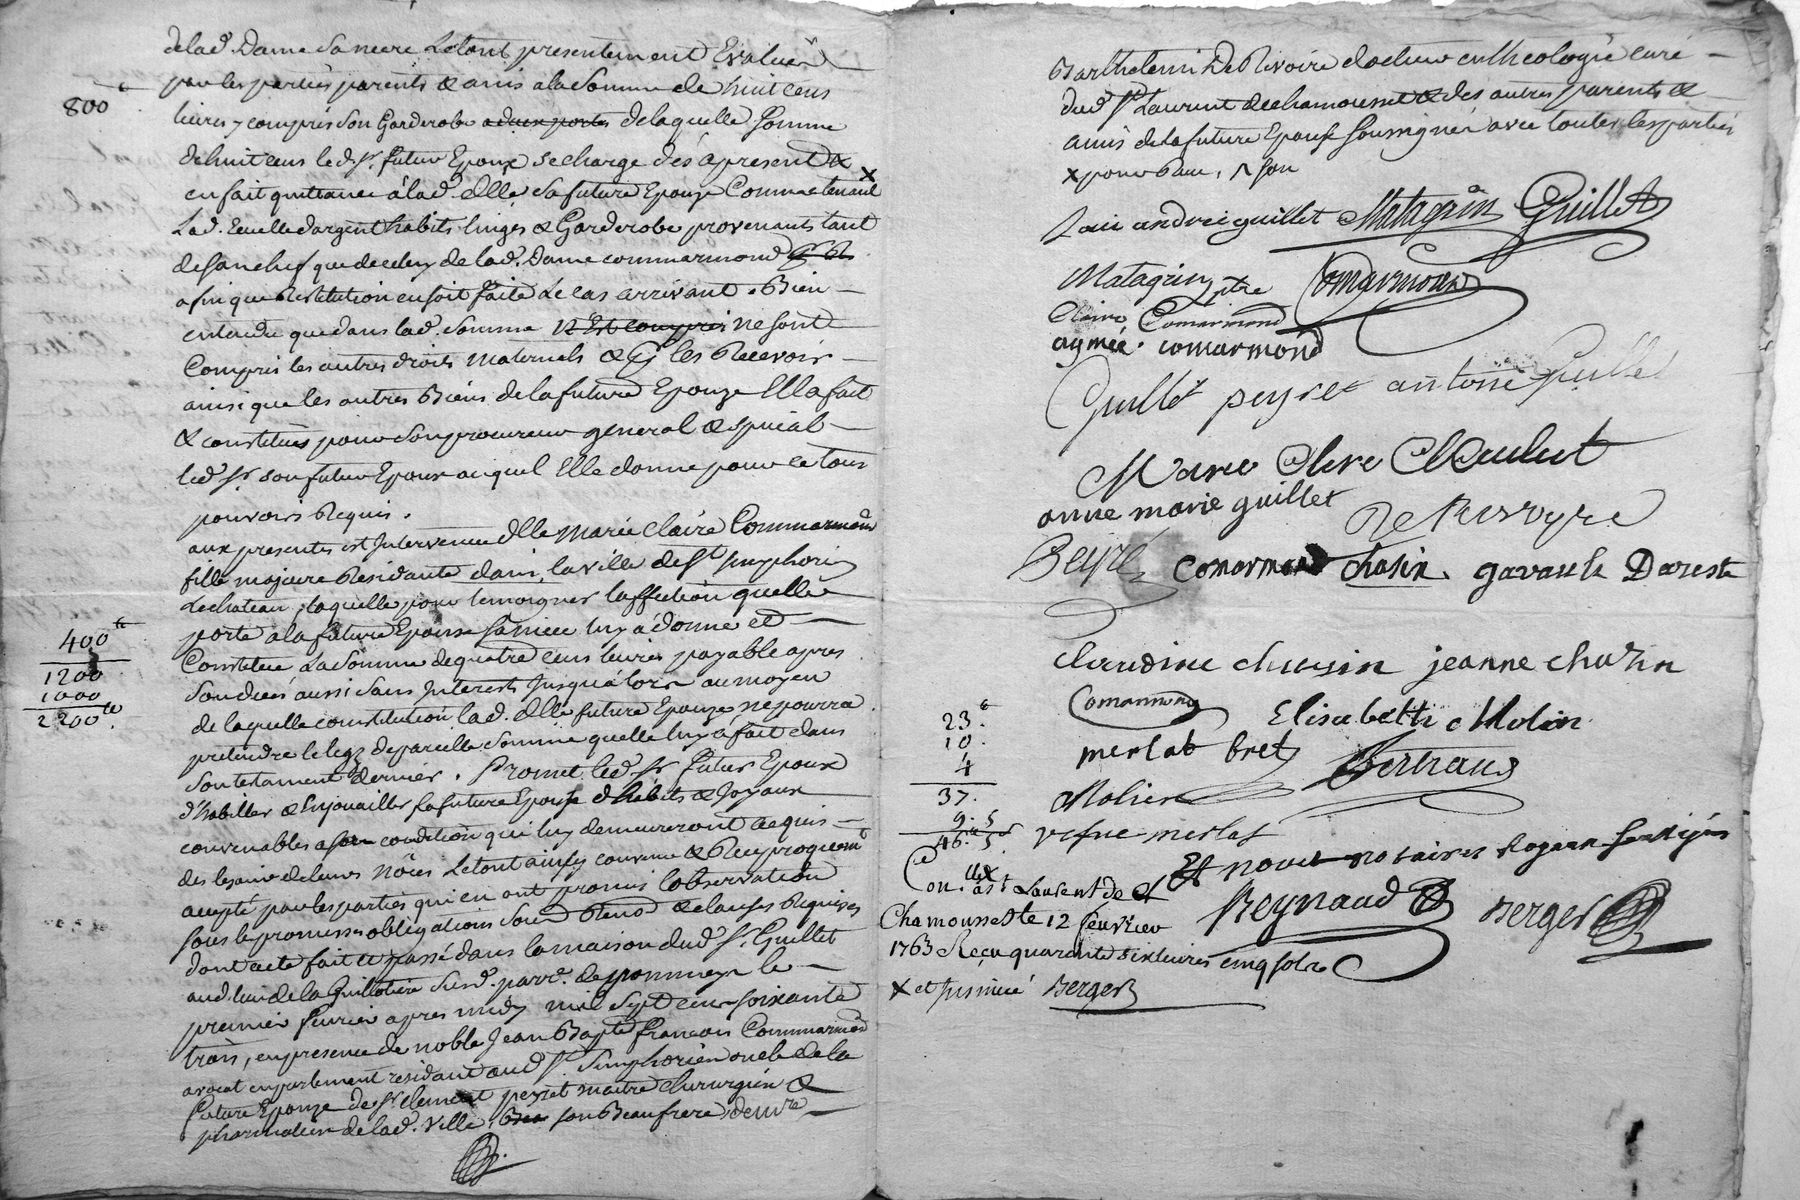 delad. Dame sa mere Letout presentement Evalué
par les parties parents & amis a la Somme de huit cens
800 ₶
livres y compris son Garderobe a deux portes de laquelle Somme
de huit cens led. Sr. futur Epoux se charge dès apresent &
en fait quittance à lad. dlle. sa future Epouze Comme de tout x
Lad. Vaisselle d'argent habits linges & Garderobe provenants tant
de son chef que de celuy de lad. Dame commarmond
afin que Restitution en soit faite Le cas arrivant. Bien
entendu que dans lad. Somme n'Est compris ne sont
Compris les autres droits maternels & les Recevoir
ainsi que les autres Biens de la future Epouze Elle a fait
& constitué pour son procureur general & special
led. Sr. son futur Epoux auquel Elle donne pour ce tous
pouvoirs Requis.
aux presentes est Intervenue dlle Marie Claire Commarmond
fille majeure Residante dans la ville de St. Simphorin
Lechateau, laquelle pour temoigner l'affection quelle
porte a la future Epouse sa niece luy a donné et
Constitué La Somme de quatre cens livres payable apres
400 ₶
1200
1000
2200 ₶.
son decés aussi sans Interests Jusqu'alors au moyen
de laquelle constitution lad. dlle future Epouze ne pourra
pretendre le legz de pareille Somme quelle luy a fait dans
son testament dernier. Promet led. Sr. futur Epoux
d'habiller & Enjouailler sa future Epouse d'habits & Joyaux
convenables a son condition qui luy demeureront acquis
des le jour de leurs nôces Le tout ainsy convenu & Reciproquemt
accepté par les parties qui en ont promis l'observation
sous les promesses obligations Soumd. Renod. & clauses Requises
dont acte fait & passé dans la maison dud. Sr. Guillet
aud. lieu de la Guillotiere Susd. parr. de pommeys le
premier fevrier apres midy mil Sept cens soixante
trois, en presence de noble Jean Bapte francois Commarmond
avocat en parlement residant aud. St. Simphorien oncle de la
future Epouze de Sr. Clement peyret maitre chirurgien &
pharmatien de lad. ville, son Beaufrere, de mre
Barthelemi De Rivoire docteur en theologie curé
dud. St. Laurent de chamousset & des autres parents &
amis de la future Epouse Soussignés avec toutes les parties
x pour ^ son
andrée guillet Matagrin Guillet
Matagrin ptre Comarmond
Claire Comarmond
aymée. comarmond
Guillet peyret antoine Guillet
Marie Clere Maulut
anne marie guillet DeRivoyre
Beyre Comarmond chasin gavault Dareste
claudine chassin jeanne chazin
Comarmond Elisabeth Molin
merlat bret Bertrand
Molien
vefue merlat
23. ₶
10.
4
37.
9. 5
46. ₶ 5. s
Et nous notaires Royaux soussignés
Reynaud Berger
Con. llé a St Laurent de
Chamousset le 12 fevrier
1763 Reçu quarante six livres cinq sols
x et Insinué Berger